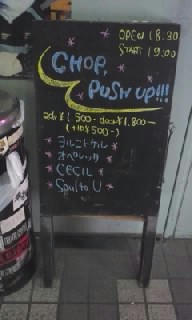 OPEN 18.30
START 19.00
CHOP,
PUSH UP!!!
adv ¥1500- door¥1.800-
(+1D¥500-)
* ヨルニトケル *
* オペレッグ
* CECIL *
* Soul to U *